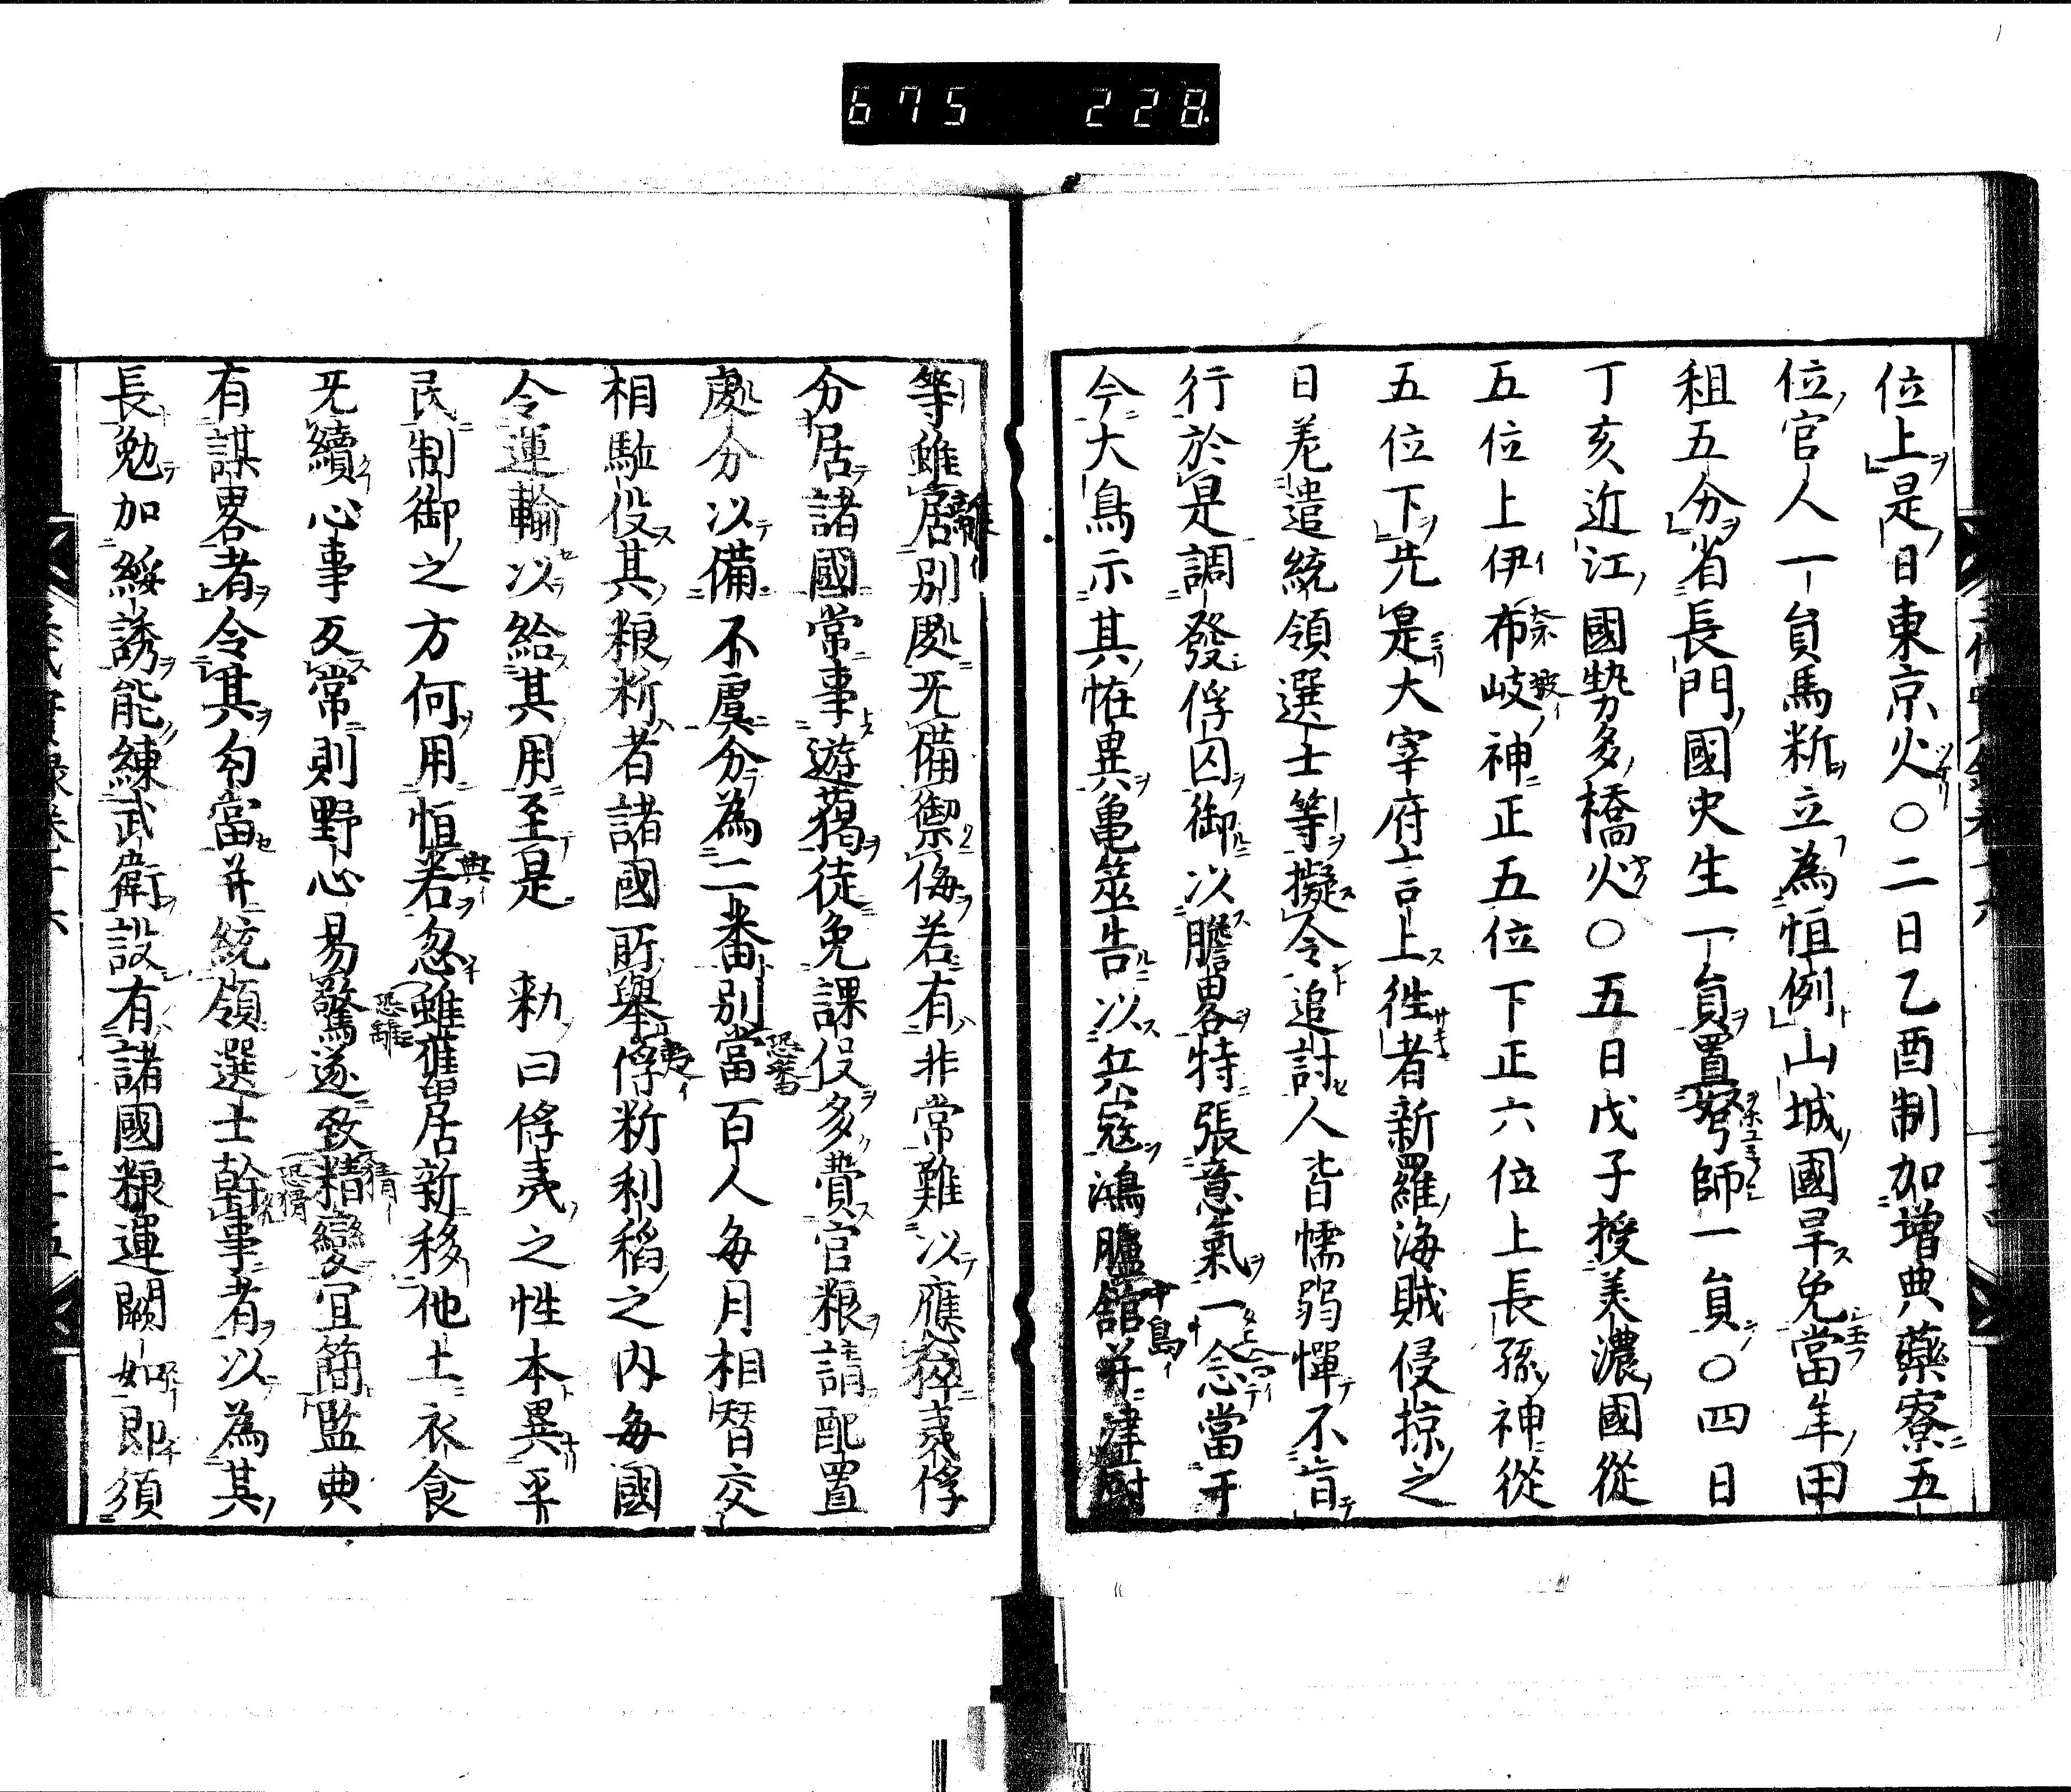 675 228
位上是日東京火〇二日乙酉制加增典藥寮五
位官人一員馬䉼立為恒例山城國旱免當年田
租五分省長門國史生一員置弩師一員〇四日
丁亥近江國勢多橋火〇五日戊子授美濃國從
五位上伊布岐神正五位下正六位上長孫神從
五位下先是大宰府言上徃者新羅海賊侵掠之
日差遣統領選士等擬令追討人皆懦弱憚不肯
行於是調發俘囚御以膽畧特張意氣一念當千
今大鳥示其恠異亀筮告以兵寇鴻臚舘并津厨
等雖居別處无備禦侮若有非常難以應猝夷俘
分居諸國常事遊獦徒免課役多費官粮請配置
處分以備不虞分為二番別當百人每月相替交
相駈役其粮䉼者諸國所舉俘䉼利稻之内每國
令運輸以給其用至是 勅曰俘夷之性本異平
民制御之方何用恒若忽雖舊居新移他土衣食
无續心事反常則野心易驚遂致精變宜簡監典
有謀畧者令其勾當并統領選士幹事者以為其
長勉加綏誘能練武衛設有諸國粮運闕如即須